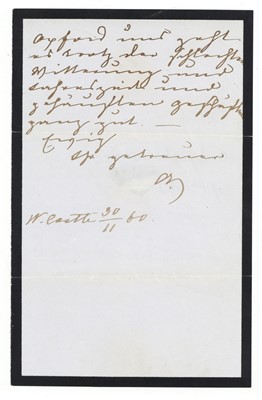 Oxford uns geht
es trotz der schlechten
Witterung und
Jahreszeit und
gehäuften Geschäften
ganz gut. —
Ewig
Ihr getreuer
A.
W. Castle 30/11 60.